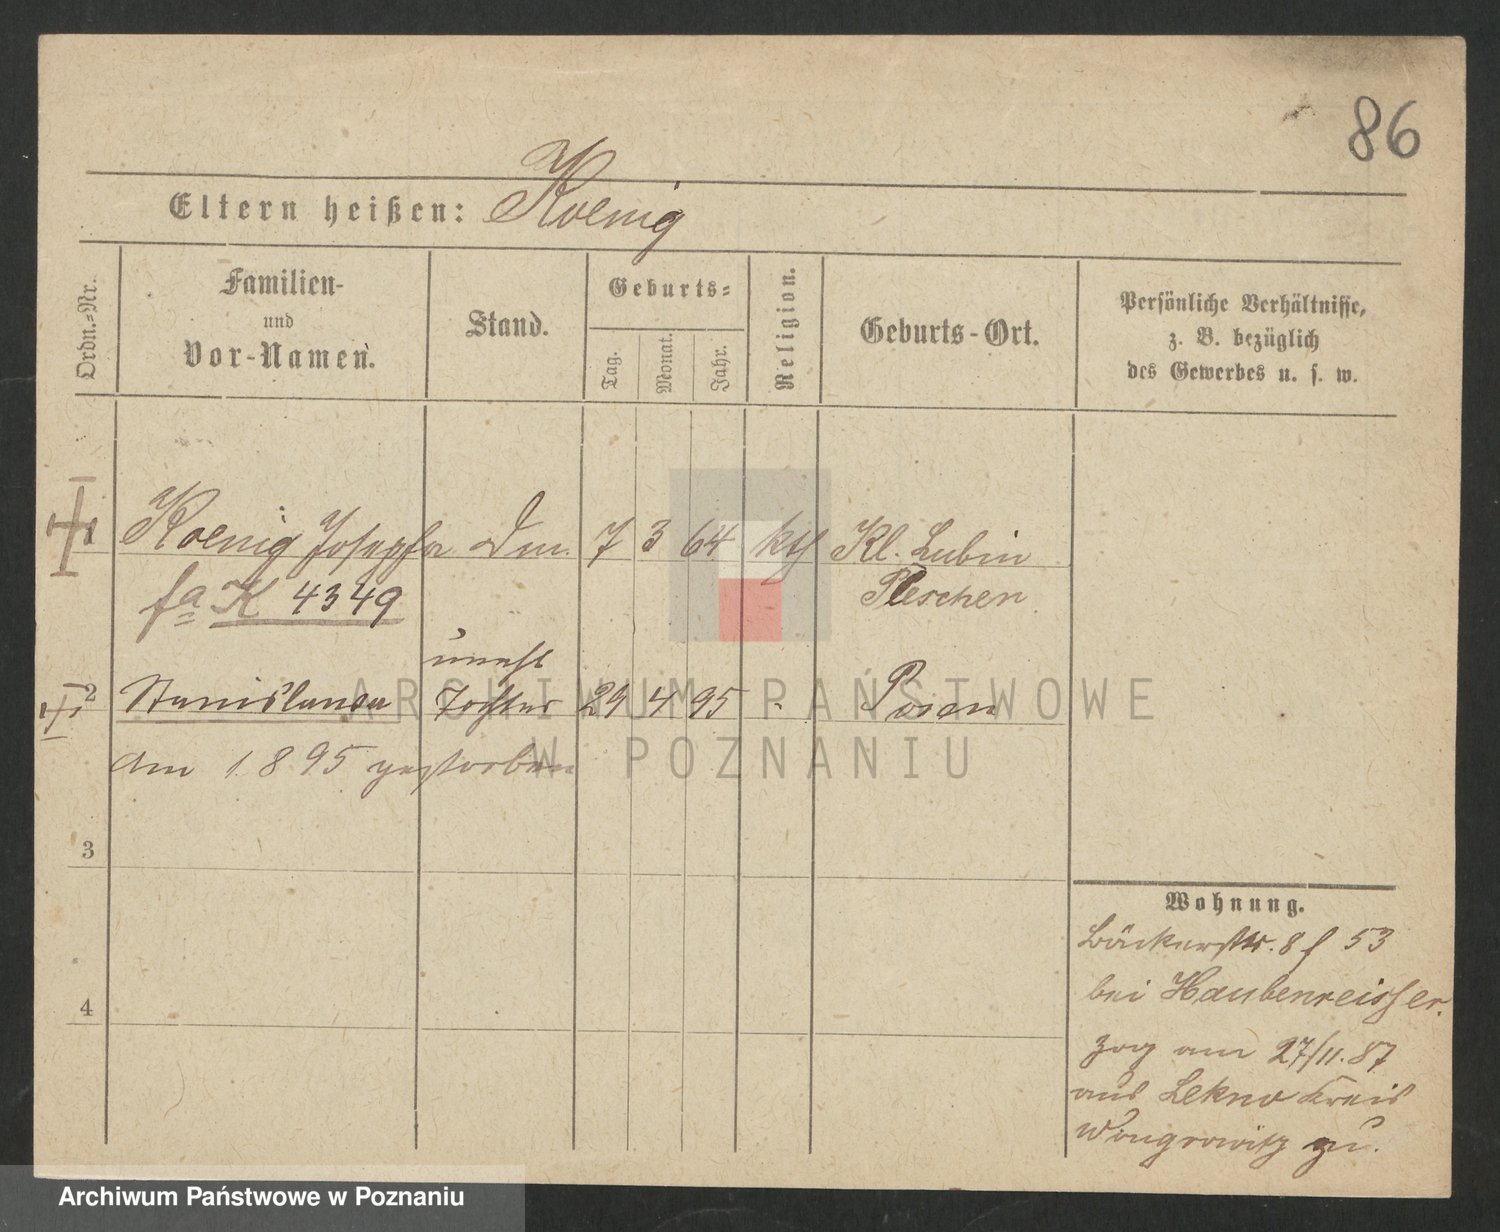 86
Eltern heißen: Koenig
Ordn.-Nr.
Familien-
und
Vor-Namen.
Stand.
Geburts-
Tag.
Monat.
Jahr.
Religion.
Geburts-Ort.
Persönliche Verhältnisse,
z. B. bezüglich
des Gewerbes u. s. w.
1 Koenig Josepha 7 3 64 kth Kl. Lubin
Pleschen
K 4349
unehl
2 Stanislawa Tochter 29 4 95 Posen
am 1.8 95 gestorben
3
4
Wohnung.
Bäckerstr. 8 f 53
bei Haubenreisser.
zog am 27/11.87
aus Lekno Kreis
Wongrowitz zu.
ARCHIWUM PAŃSTWOWE
W POZNANIU
Archiwum Państwowe w Poznaniu